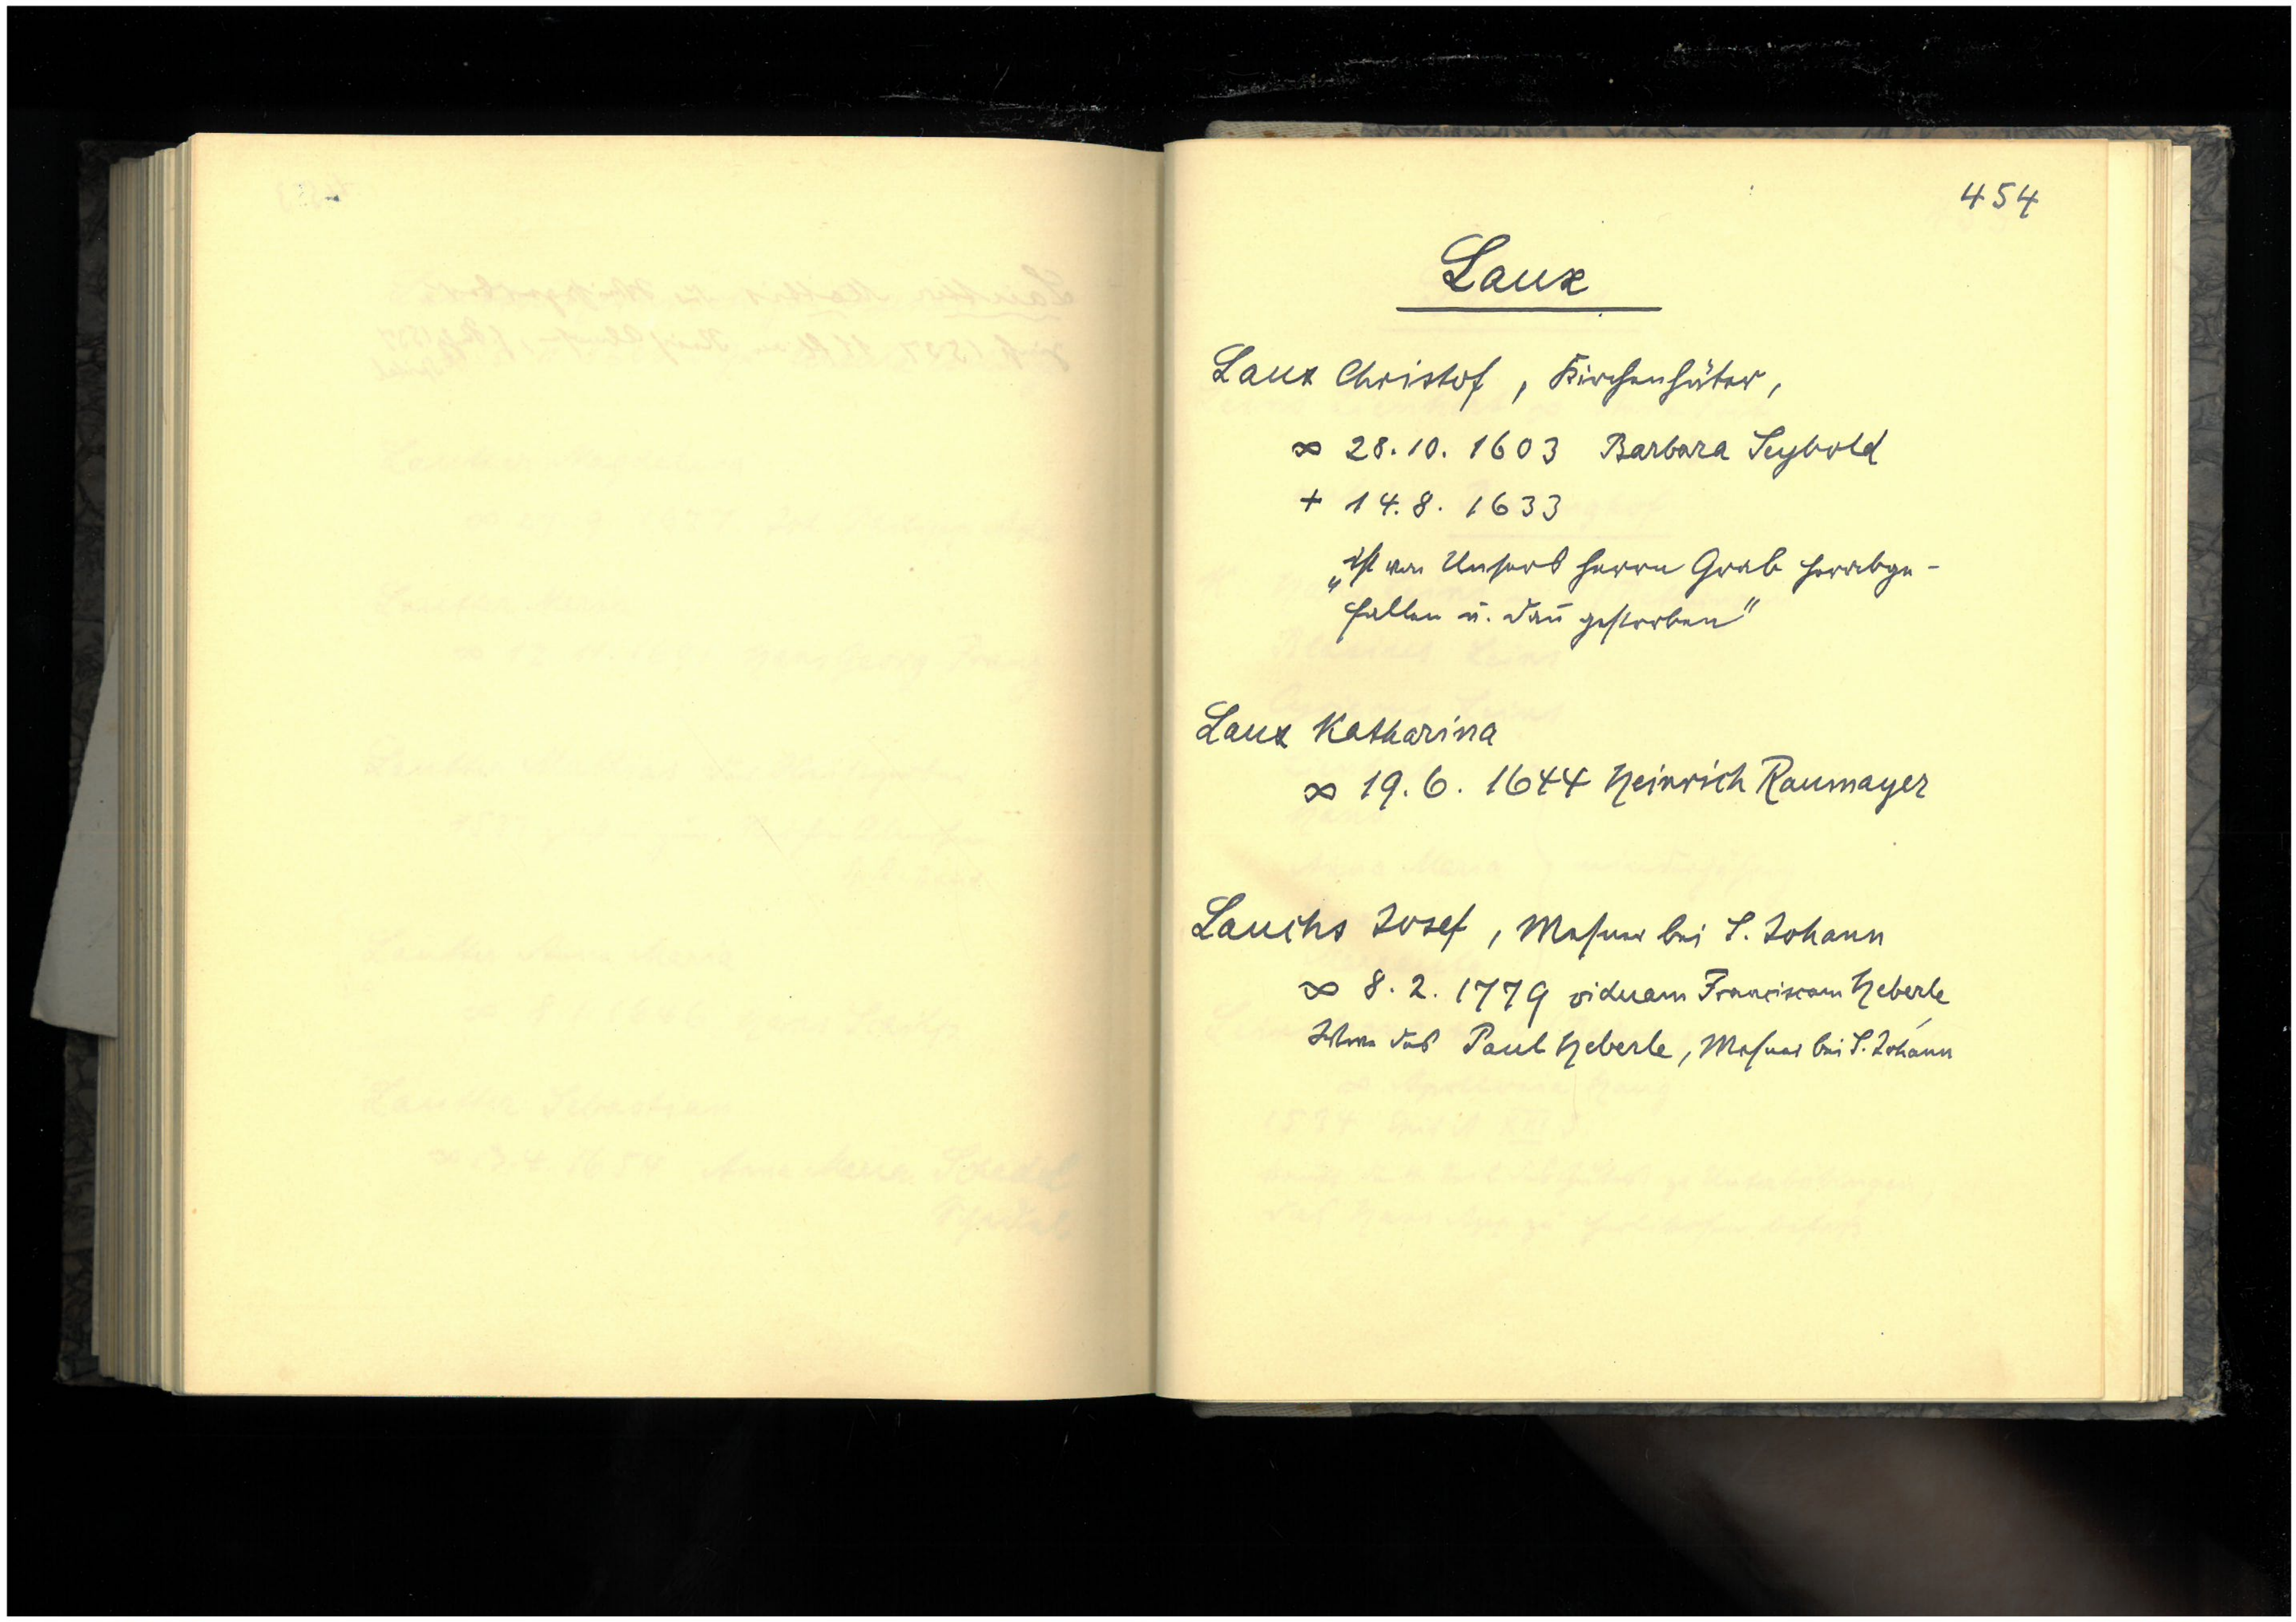 454
Laux
Laux Christof, Kirchenhüter,
∞ 28.10.1603 Barbara Seybold
+ 14.8.1633
„Ist von Unsers Herrn Grab herabge-
fallen u. dañ gestorben"
Laux Katharina
∞ 19.6.1644 Heinrich Raumayer
Lauchs Josef, Mesner bei S. Johann
∞ 8.2.1779 viduam Franciscam Heberle
des Paul Heberle, Mesner bei S. Johann